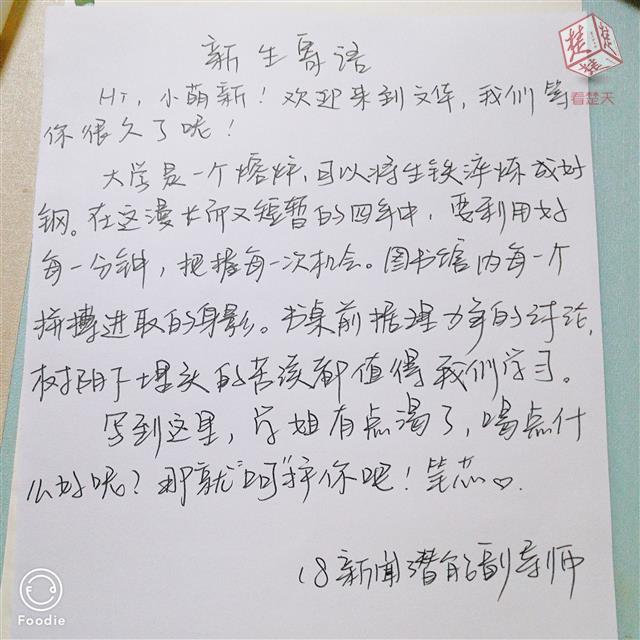 新生寄语
楚
看楚天
Hi，小萌新！欢迎来到文华，我们等
你很久了呢！
大学是一个熔炉，可以将生铁淬炼成好
钢。在这漫长而又短暂的四年中，要利用好
每一分钟，把握每一次机会。图书馆内每一个
拼搏进取的身影。书桌前据理力争的讨论，
树阴下埋头的苦读都值得我们学习。
写到这里，学姐有点渴了，喝点什
么好呢？那就“呵”护你吧！笔芯♡.
18新闻潜能副导师
Foodie